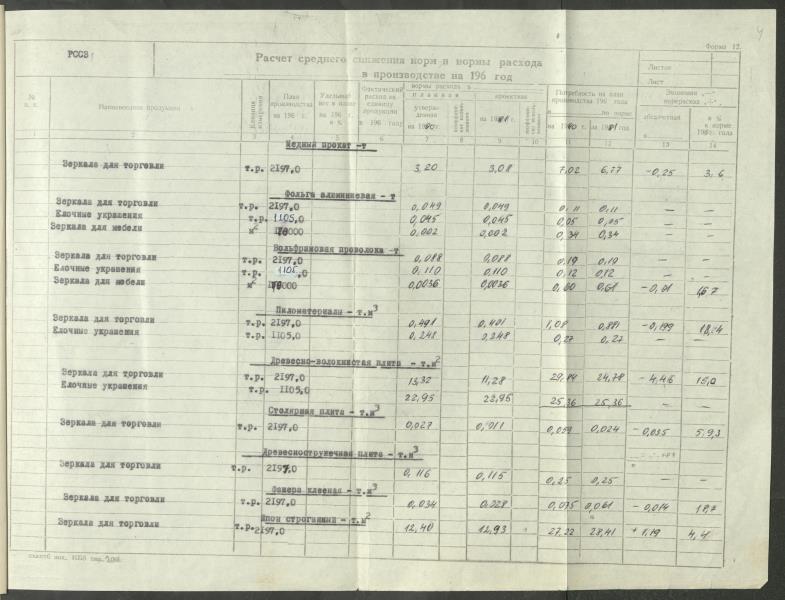 4
РССЗ
Форма 12.
Расчет среднего снижения норм и нормы расхода
в производстве на 196 год
Листов
Лист
№ п. п.
Наименование продукции
Единица измерения
План производства на 196 г.
Удельный вес в плане в %
Фактический расход на единицу продукции в 196 году
нормы расхода в
плановая
утвержденная на 1980
проектная
на 1981
Потребность на план производства 196 года
в по норме
на 1980 г. на 1981 год
Экономия
перерасход
абсолютная
в %
к норме
198 года
2 3 4 5 6 7 8 9 10 11 12 13 14
Медный прокат -т
Зеркала для торговли т.р. 2197,0 3,20 3,08 7,02 6,77 -0,25 3,6
Фольга алюминиевая - т
Зеркала для торговли т.р. 2197,0 0,049 0,049 0,11 0,11 — —
Елочные украшения т.р. 1105,0 0,045 0,045 0,05 0,05 — —
Зеркала для мебели м2 0,002 0,002 0,34 0,34 — —
Вольфрамовая проволока -т
Зеркала для торговли т.р. 2197,0 0,088 0,088 0,19 0,19 — —
Елочные украшения т.р. 1105,0 0,110 0,110 0,12 0,12 — —
Зеркала для мебели м2 0,0036 0,0036 0,60 0,61 -0,01
Пиломатериалы - т.м3
Зеркала для торговли т.р. 2197,0 0,491 0,401 1,08 0,881 -0,199 18,4
Елочные украшения т.р. 1105,0 0,248 0,248 0,27 0,27 — —
Древесно-волокнистая плита - т.м2
Зеркала для торговли т.р. 2197,0 13,32 11,28 24,78 -4,46 15,0
Елочные украшения т.р. 1105,0 22,95 22,95 25,36 25,36 — —
Столярная плита - т.м3
Зеркала для торговли т.р. 2197,0 0,027 0,011 0,059 0,024 -0,035 59,3
Древесностружечная плита - т.м3
Зеркала для торговли т.р. 2197,0 0,116 0,115 0,25 0,25 — —
Фанера клееная - т.м3
Зеркала для торговли т.р. 2197,0 0,034 0,028 0,075 0,061 -0,014 18,7
Шпон строганный - т.м2
Зеркала для торговли т.р. 2197,0 12,40 12,93 27,22 28,41 +1,19 4,4